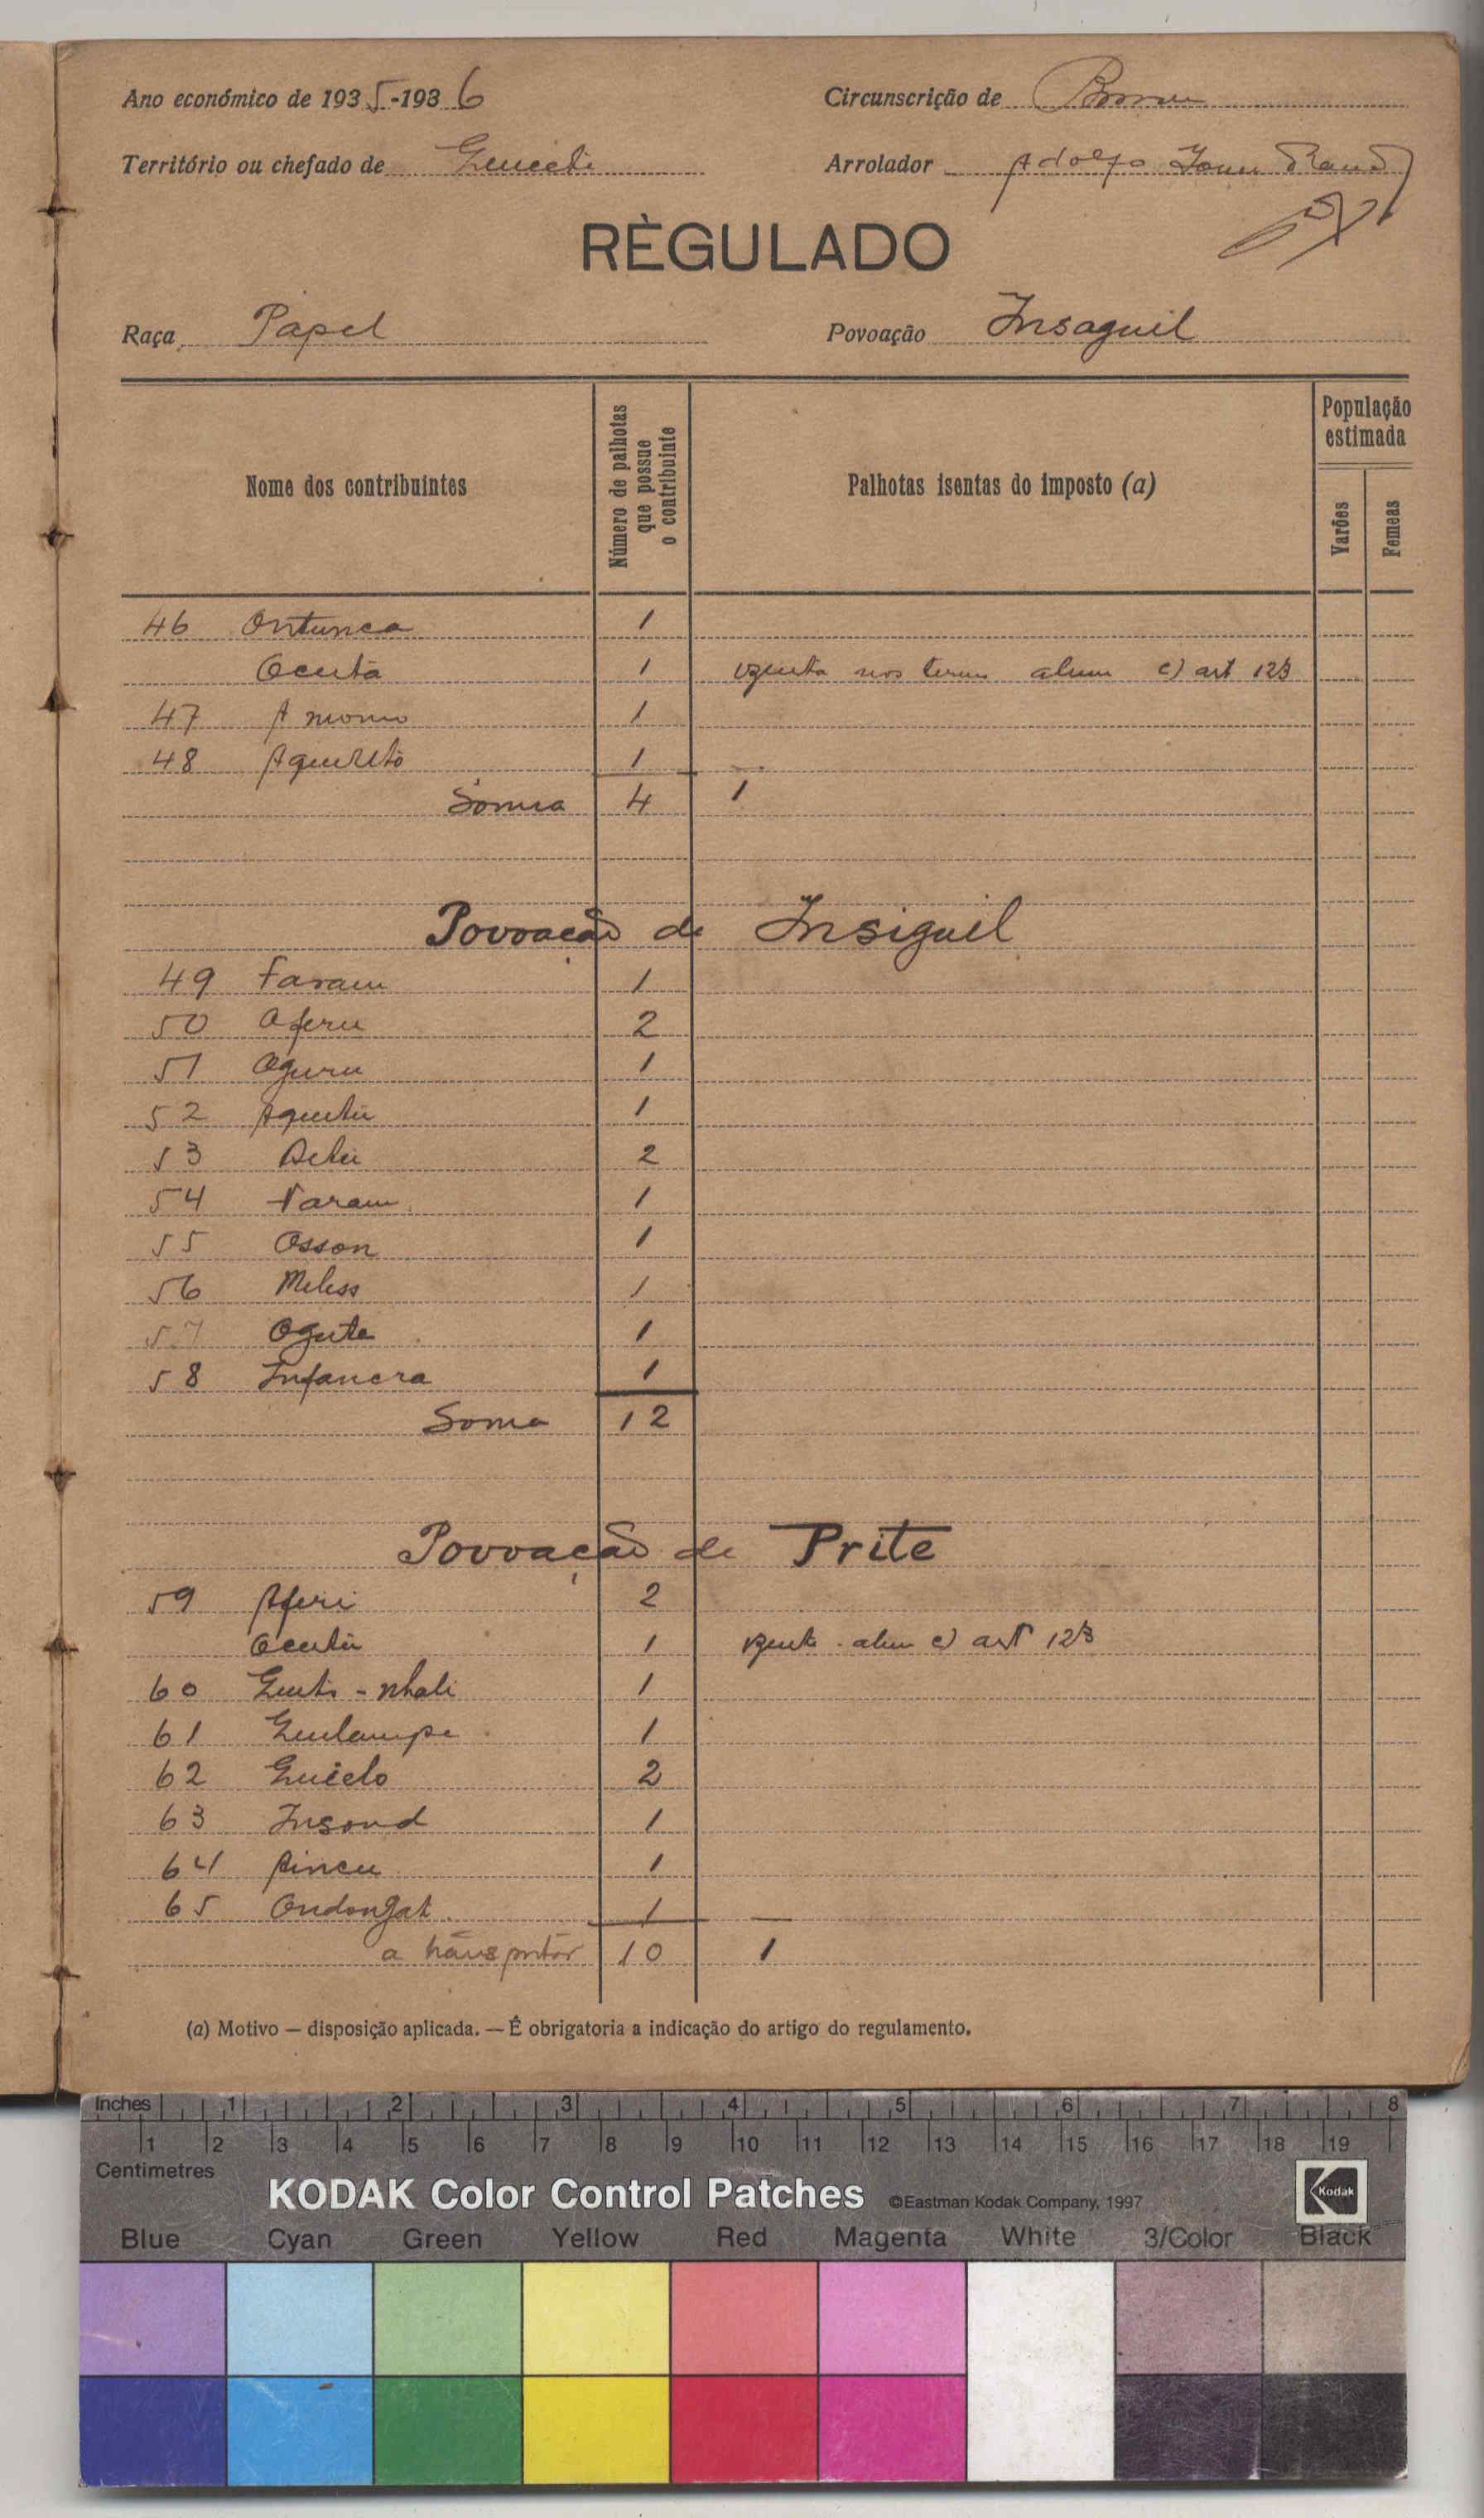 Ano económico de 1935-1936 Circunscrição de
Território ou chefado de Arrolador Adolfo
RÈGULADO
Raça Papel Povoação Insaguil
Nome dos contribuintes
Número de palhotas que possue o contribuinte
Palhotas isentas do imposto (a)
População estimada
Varões
Femeas
46 Ontunca 1
Ocutá 1 nos alum c) art 123
47 1
48 1
Sôma 4 1
Povoação de Insiguil
49 Faram 1
50 Aferu 2
51 Oguru 1
52 1
53 2
54 Naram 1
55 Osson 1
56 Meless 1
57 Ogute 1
58 Infancra 1
Soma 12
Povoação de Prite
59 Aferi 2
1 alum c) art 123
60 - nhali 1
61 1
62 2
63 Insond 1
64 1
65 Ondongat 1
a transportar 10 1
(a) Motivo — disposição aplicada. — É obrigatoria a indicação do artigo do regulamento.
Inches 1 2 3 4 5 6 7 8
1 2 3 4 5 6 7 8 9 10 11 12 13 14 15 16 17 18 19
Centimetres
KODAK Color Control Patches ©Eastman Kodak Company, 1997 Kodak
Blue Cyan Green Yellow Red Magenta White 3/Color Black